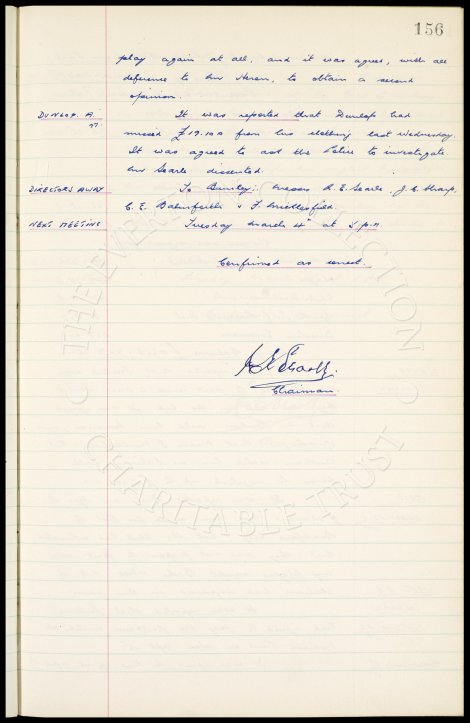 156
play again at all, and it was agreed, with all
deference to Mr Heron, to obtain a second
opinion.
DUNLOP. A. It was reported that Dunlop had
missed £19.10.0 from his clothing last Wednesday.
It was agreed to ask the Police to investigate
Mr Searle dissented.
DIRECTORS AWAY To Burnley: Messrs R. E. Searle, J. C. Sharp,
C. E. Balmforth & F. Micklesfield.
NEXT MEETING Tuesday March 4th at 5 p.m.
Confirmed as correct.
Chairman.
THE EVERTON COLLECTION
CHARITABLE TRUST